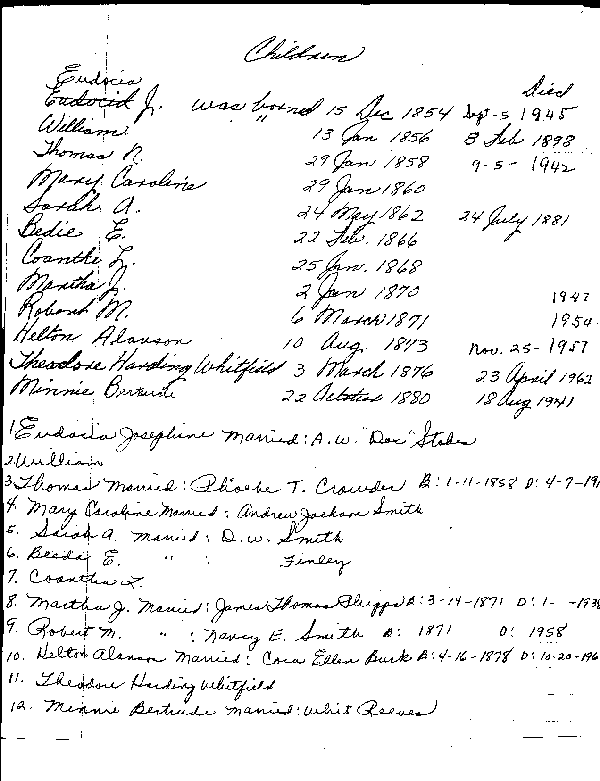 Children
Eudocia Died
Eudocid J. was born 15 Dec 1854 Sept-5 1945
William " 13 Jan 1856 8 Feb 1898
Thomas N. 29 Jan 1858 9-5-1942
Mary Caroline 29 Jan 1860
Sarah A. 24 May 1862 24 July 1881
Bedie E. 22 Feb. 1866
Coanthe L. 25 Jan. 1868
Martha J. 2 Jan 1870 1947
Robert M. 6 March 1871 1954
Helton Alanson 10 Aug. 1873 Nov. 25-1957
Theodore Harding Whitfield 3 March 1876 23 April 1962
Minnie Bertrude 22 October 1880 18 Aug 1941
1. Eudocia Josephine Married: A.W. "Doc" Stokes
2. William
3. Thomas Married: Phoebe T. Crowder B: 1-11-1858 D: 4-7-19
4. Mary Caroline Married: Andrew Jackson Smith
5. Sarah A. Married: D.W. Smith
6. Beeda E. " : Finley
7. Coantha L.
8. Martha J. Married: James Thomas Phipps B: 3-14-1871 D: 1- -193
9. Robert M. " : Nancy E. Smith B: 1871 D: 1958
10. Helton Alanson Married: Cora Ellen Burk B: 4-16-1878 D: 10-20-196
11. Theodore Harding Whitfield
12. Minnie Bertrude Married: Whit Reeves